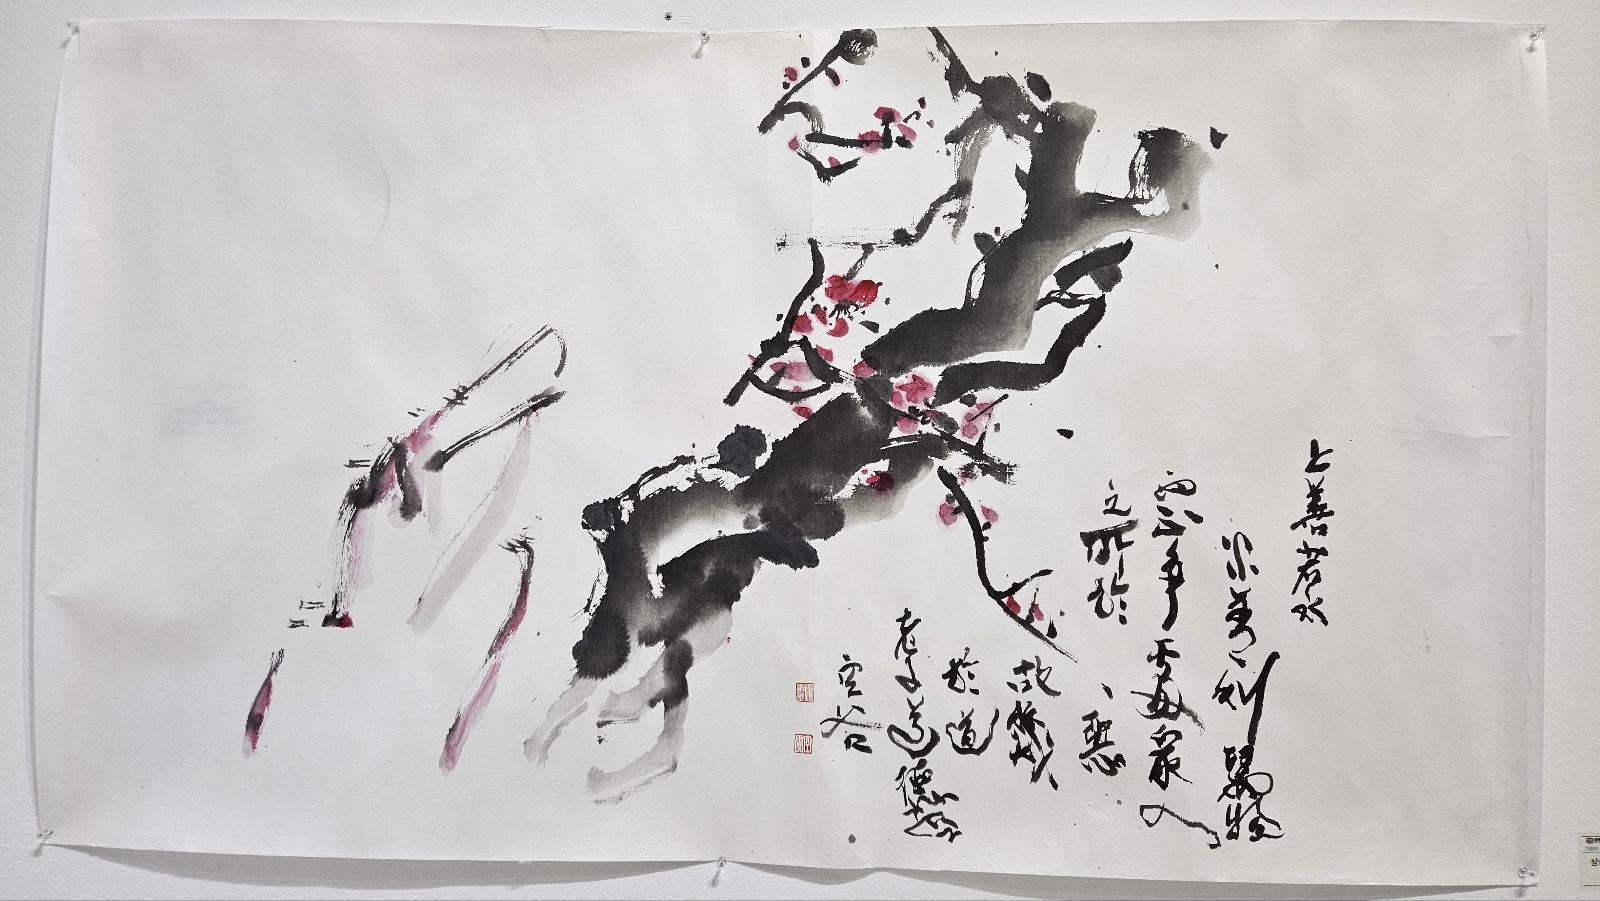 上善若水
水善利萬物
而不爭處衆人
之所於惡
故幾
於道
老子道德經
空谷